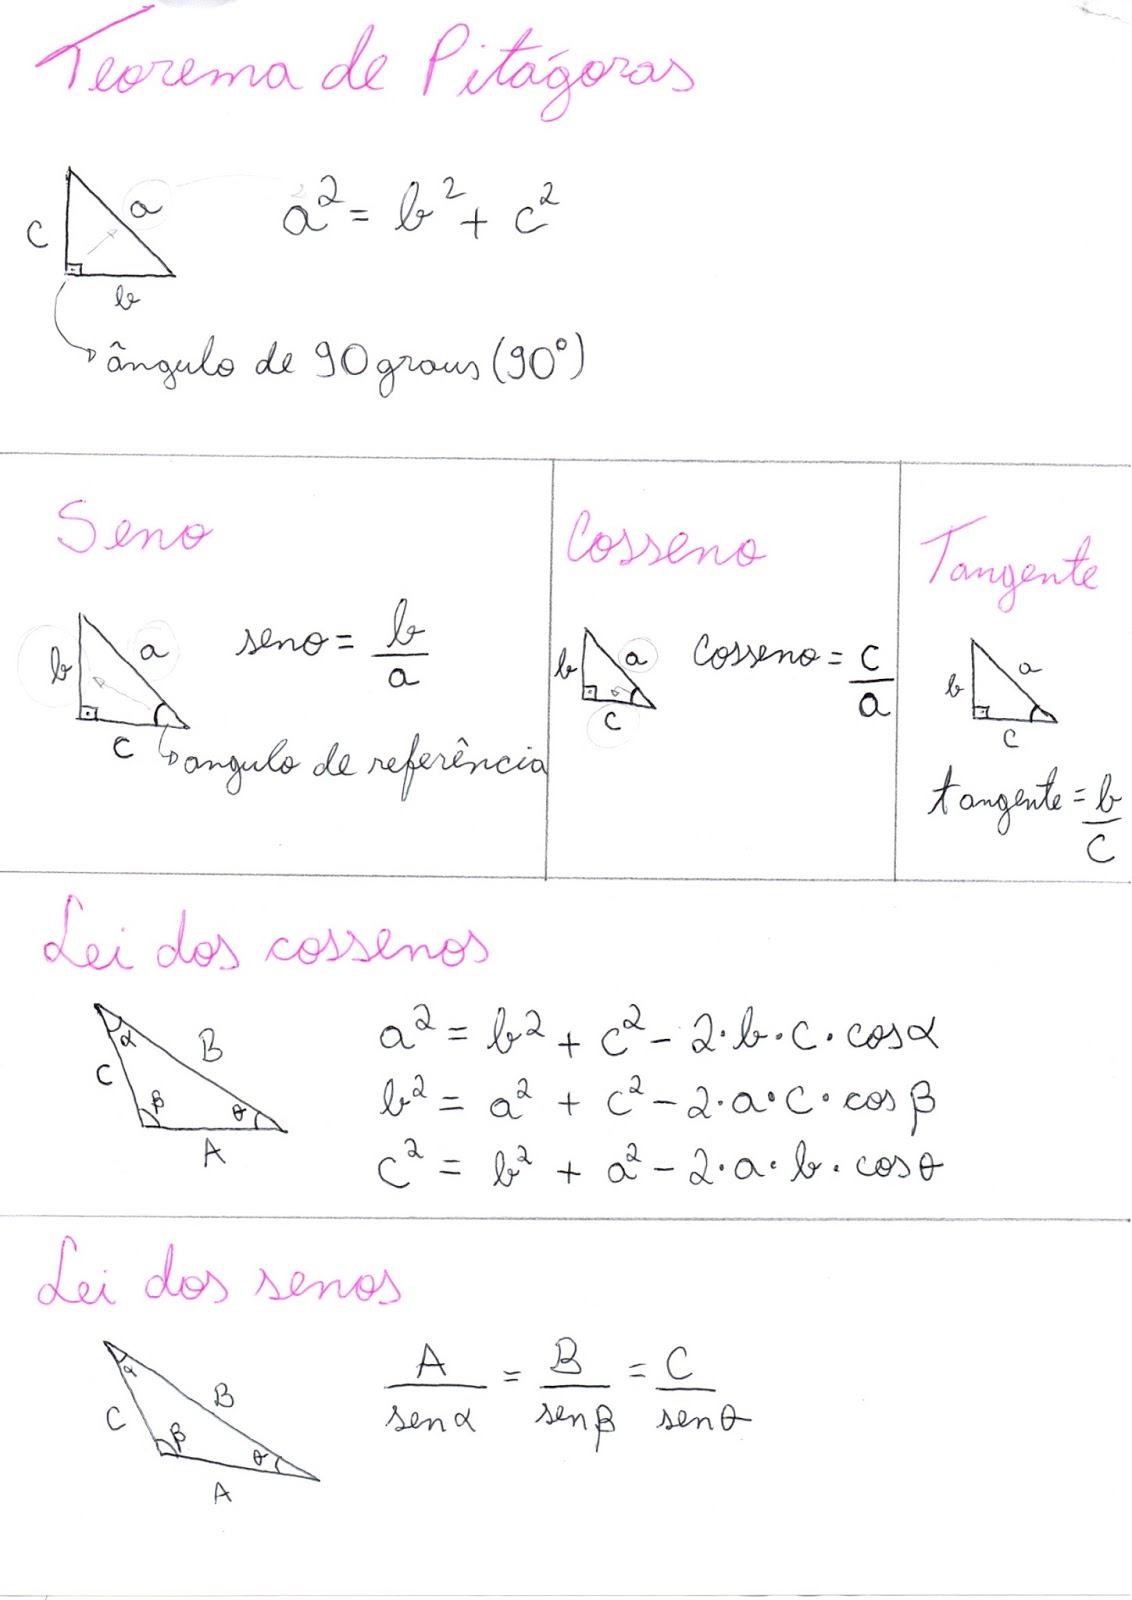 Teorema de Pitágoras
c a a² = b² + c²
b
ângulo de 90 graus (90°)
Seno
b a seno = b/a
c angulo de referência
Cosseno
b a cosseno = c/a
c
Tangente
b a
c
tangente = b/c
Lei dos cossenos
α B a² = b² + c² - 2·b·c·cosα
C β θ b² = a² + c² - 2·a·c·cosβ
A c² = b² + a² - 2·a·b·cosθ
Lei dos senos
α B A/senα = B/senβ = C/senθ
C β θ
A